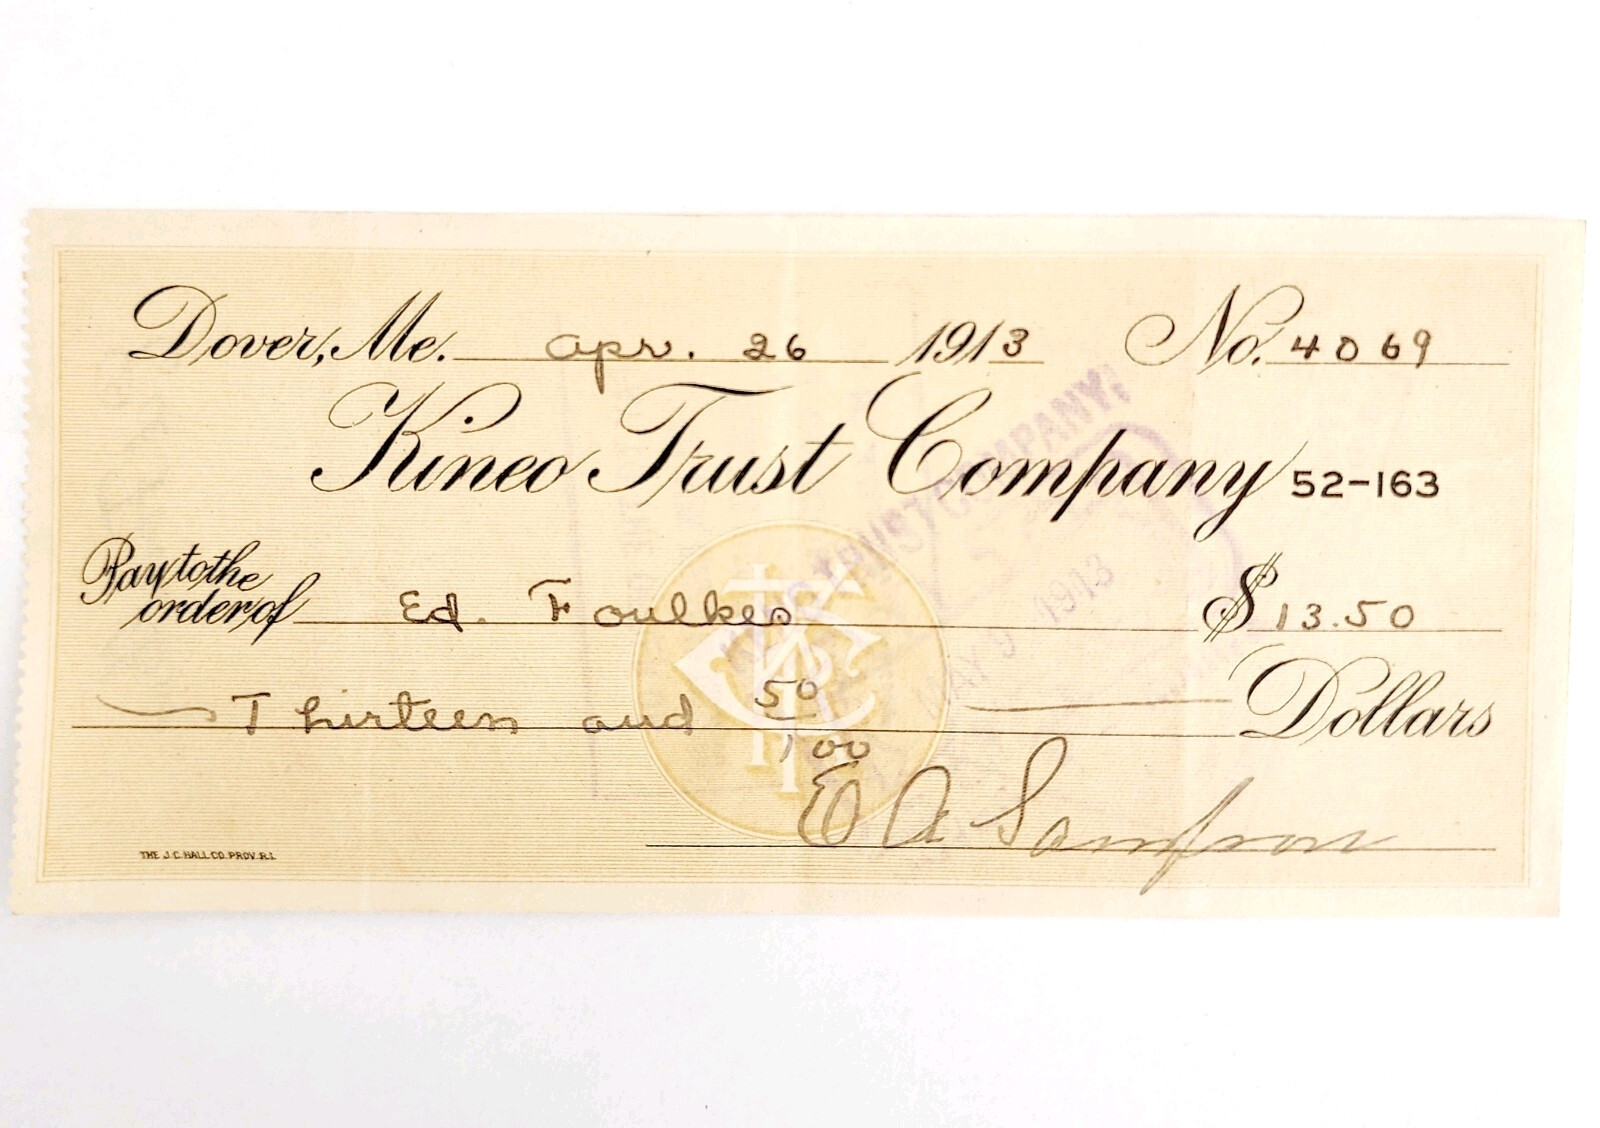 Dover, Me. Apr. 26 1913 No. 4069
Kineo Trust Company 52-163
Pay to the order of Ed. Foulkes $13.50
Thirteen and 50/100 Dollars
E A Sampson
THE J.C. HALL CO. PROV. R.I.
TRUST COMPANY
MAY 9 1913